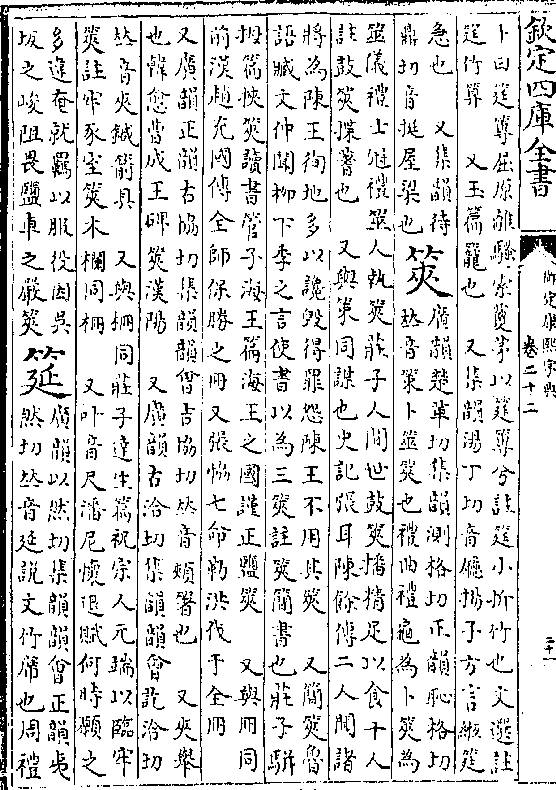 欽定四庫全書
御定康熙字典
卷二十二
卜曰筳篿屈原離騷索瓊茅以筳篿兮註筳小折竹也文選註
筳竹算 又玉篇籠也 又集韻湯丁切音廳揚子方言縆筳
急也 又集韻待
鼎切音挺屋梁也
筴
廣韻楚革切集韻測格切正韻恥格切
𠀤音策卜筮筴也禮曲禮龜為卜筴為
筮儀禮士冠禮筮人執筴莊子人間世鼓筴播精足以食十人
註鼓筴揲蓍也 又與策同謀也史記張耳陳餘傳二人聞諸
將為陳王徇地多以讒毀得罪怨陳王不用其筴 又簡筴魯
語臧文仲聞柳下季之言使書以為三筴註筴簡書也莊子駢
拇篇挾筴讀書管子海王篇海王之國謹正鹽筴 又與冊同
前漢趙充國傳全師保勝之冊又張協七命勒洪伐于金冊
又廣韻正韻古協切集韻韻會吉協切𠀤音頰箸也 又夾舉
也韓愈曹成王碑筴漢陽 又廣韻古洽切集韻韻會訖洽切
𠀤音夾鍼箭具 又與柵同莊子達生篇祝宗人元端以臨牢
筴註牢豕室筴木欄同柵 又叶音尺潘尼懷退賦何時願之
多違奄就羈以服役困吳
坂之峻阻畏鹽車之嚴筴
筵
廣韻以然切集韻韻會正韻夷
然切𠀤音延說文竹席也周禮